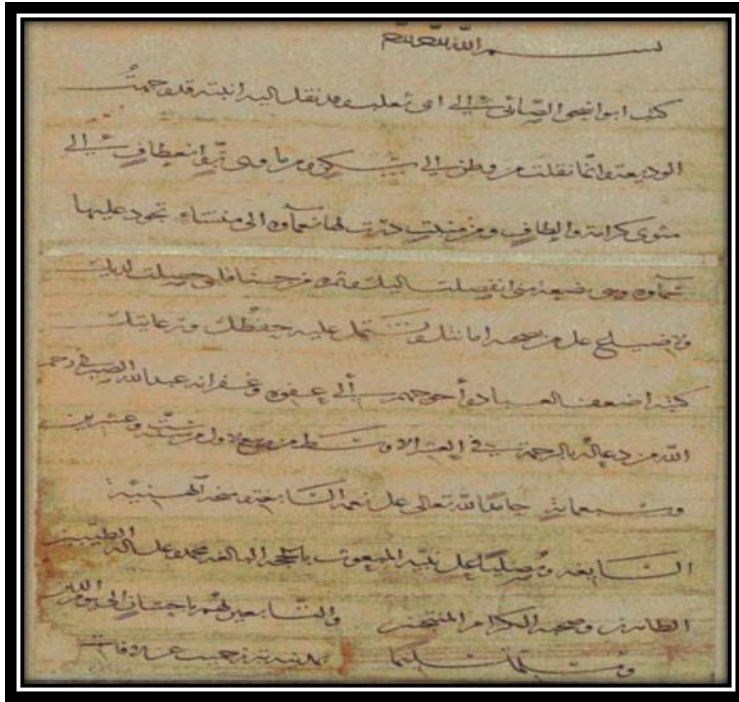 بسم الله الرحمن الرحيم
كتب ابو اسحق الصابى الى ابى تغلب وقد نقل اليه ابنته قد وجهت
الوديعة وانما نقلت من وطن الى سكن ومن مأوى بر وانعطاف الى
مثوى كرامة والطاف ومن منبت درت لها نعماؤه الى منشاء تجود عليها
سماؤه وهى بضعة منى انفصلت اليك وثمرة من جنا قلبى حصلت لديك
ولا ضياع على من تضمه امانتك ويشتمل عليه حفظك ورعايتك
كتبه اضعف العباد وأحوجهم الى عفوه وغفرانه عبد الله الصيرفى رحم
الله من دعا له بالرحمة فى العشر الاوسط من ربيع الاول من سنة وعشرين
وسبعمائة حامدا لله تعالى على نعمه السابغة
السابغه ومصليا على نبيه المبعوث بالحجة البالغه محمد وعلى اله الطيبين
الطاهرين وصحبه الكرام المنتجبين والتابعين لهم باحسان الى يوم الدين
وسلم تسليما بمدينة